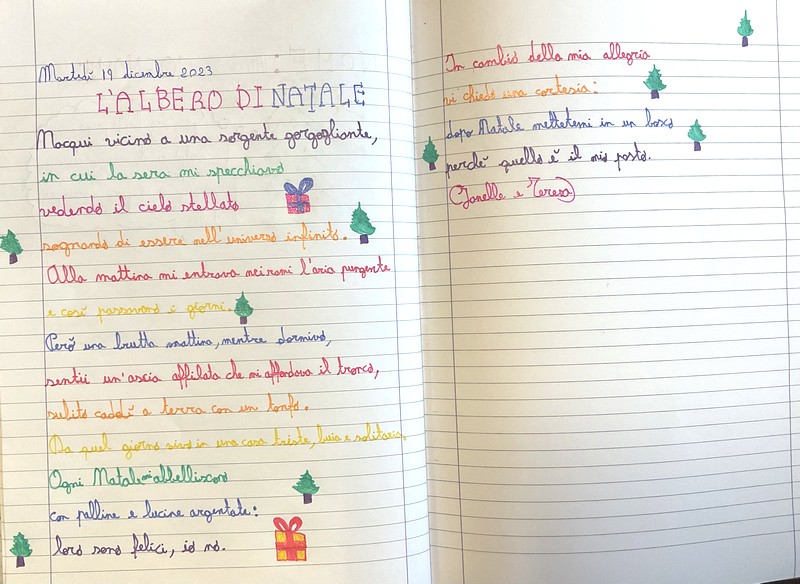 Martedì 19 dicembre 2023
L'ALBERO DI NATALE
Nacqui vicino a una sorgente gorgogliante,
in cui la sera mi specchiavo
vedendo il cielo stellato
sognando di essere nell'universo infinito.
Alla mattina mi entrava nei rami l'aria pungente
e così passavano i giorni.
Però una brutta mattina, mentre dormivo,
sentii un'ascia affilata che mi affondava il tronco,
subito caddi a terra con un tonfo.
Da quel giorno vivo in una casa triste, buia e solitaria.
Ogni Natale mi abbelliscono
con palline e lucine argentate:
loro sono felici, io no.
In cambio della mia allegria
vi chiedo una cortesia:
dopo Natale mettetemi in un bosco
perchè quello è il mio posto.
e Teresa